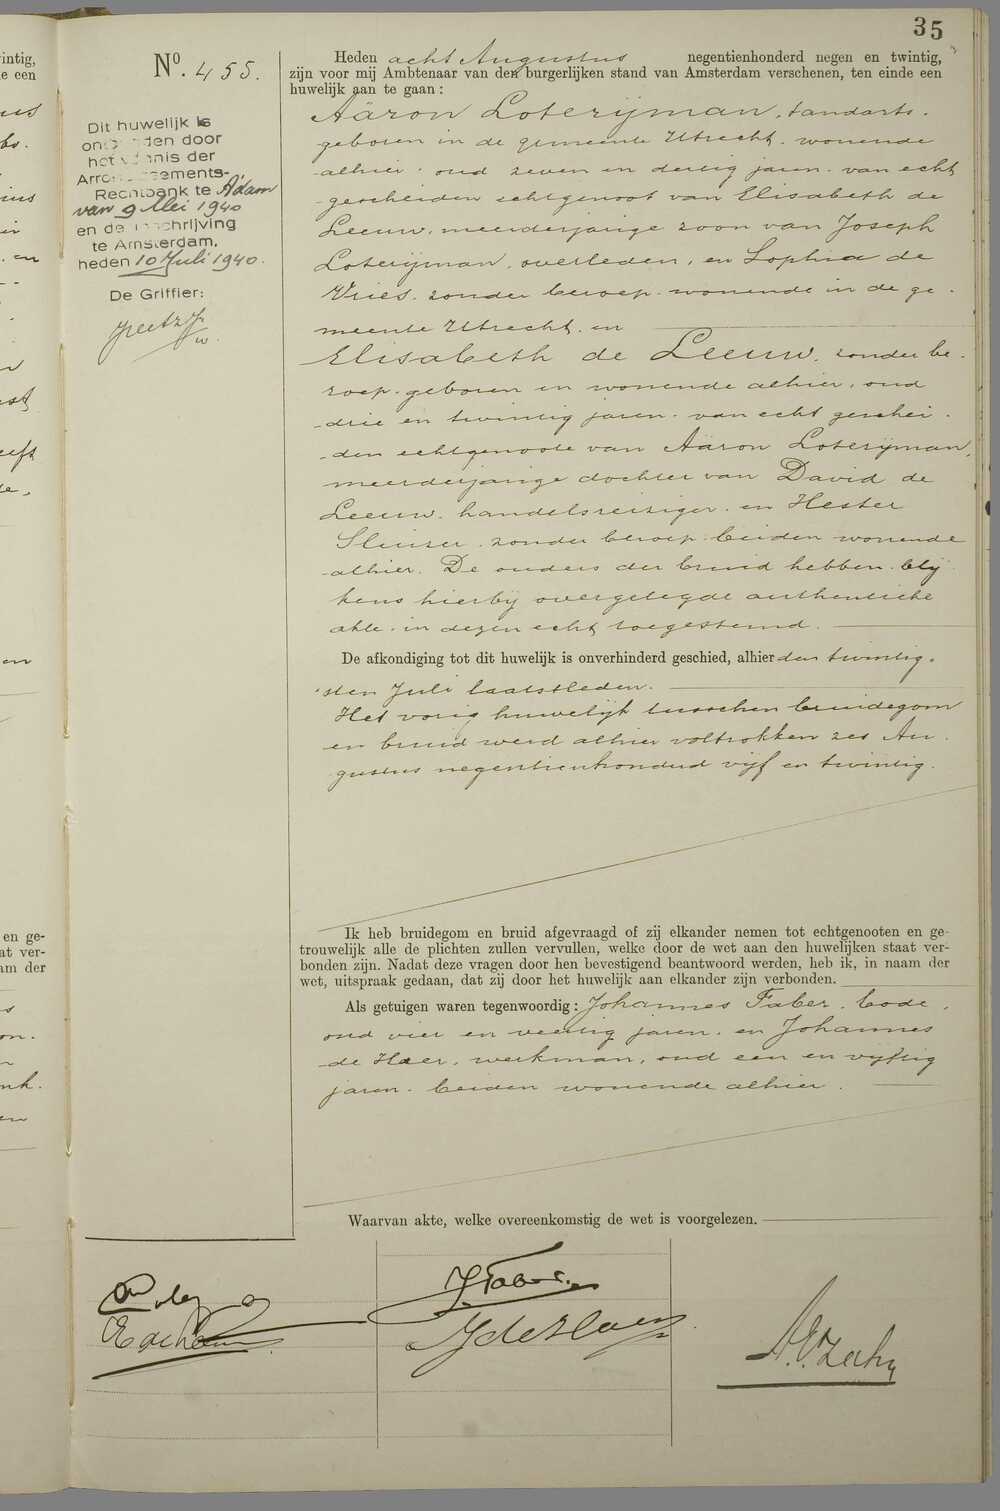 35
Nº. 455.
Dit huwelijk is
ontbonden door
het vonnis der
Arrondissements-
Rechtbank te A'dam
van 9 Mei 1940
en de inschrijving
te Amsterdam,
heden 10 Juli 1940.
De Griffier:
Heden acht Augustus negentienhonderd negen en twintig,
zijn voor mij Ambtenaar van den burgerlijken stand van Amsterdam verschenen, ten einde een
huwelijk aan te gaan:
Aäron Loterijman, tandarts,
geboren in de gemeente Utrecht, wonende
alhier, oud zeven en dertig jaren, van echt
gescheiden echtgenoot van Elisabeth de
Leeuw, meerderjarige zoon van Joseph
Loterijman, overleden, en Sophia de
Vries, zonder beroep, wonende in de ge-
meente Utrecht, en
Elisabeth de Leeuw, zonder be-
roep, geboren en wonende alhier, oud
drie en twintig jaren, van echt geschei-
den echtgenoote van Aäron Loterijman,
meerderjarige dochter van David de
Leeuw, handelsreiziger, en Hester
Sluizer, zonder beroep, beiden wonende
alhier. De ouders der bruid hebben blij-
kens hierbij overgelegde authentieke
akte, in dezen echt toegestemd.
De afkondiging tot dit huwelijk is onverhinderd geschied, alhier den twintig-
sten Juli laatstleden.
Het vorig huwelijk tusschen bruidegom
en bruid werd alhier voltrokken zes Au-
gustus negentienhonderd vijf en twintig.
Ik heb bruidegom en bruid afgevraagd of zij elkander nemen tot echtgenooten en ge-
trouwelijk alle de plichten zullen vervullen, welke door de wet aan den huwelijken staat ver-
bonden zijn. Nadat deze vragen door hen bevestigend beantwoord werden, heb ik, in naam der
wet, uitspraak gedaan, dat zij door het huwelijk aan elkander zijn verbonden.
Als getuigen waren tegenwoordig: Johannes Faber, bode,
oud vier en veertig jaren, en Johannes
de Haer, werkman, oud een en vijftig
jaren, beiden wonende alhier.
Waarvan akte, welke overeenkomstig de wet is voorgelezen.
J Faber
E de Leeuw
J de Haer